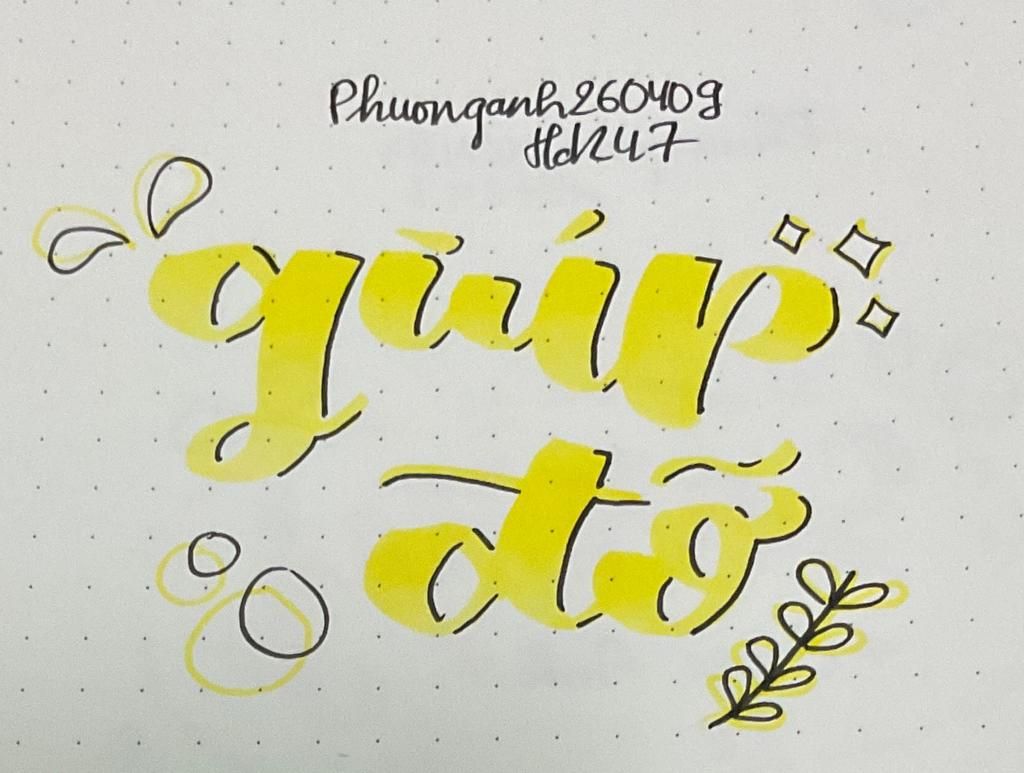 Phuonganh260409
Hd247
giúp
đỡ